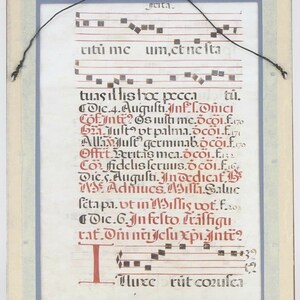 ritū me um, et ne sta
tuas illis hoc pecca tū.
Die. 4. Augusti. In s. Dñici
Cōf. Intr⁹. Os iusti me. ō cōi.
Gra. Just⁹ vt palma. ō cōi.
Alla. Just⁹ germinab. ō cōi.
Offert. Veritas mea. ō cōi.
Cō. fidelis seruus. ō cōi.
Die. 5. Augusti. In dedicat.
Ad niues. Missa. Salue
scta pa. vt in Missis vot.
Die. 6. In festo Trāsfigu
rat. Dñi nri Jesu xpi. Intr⁹.
Illuxe rūt corusca